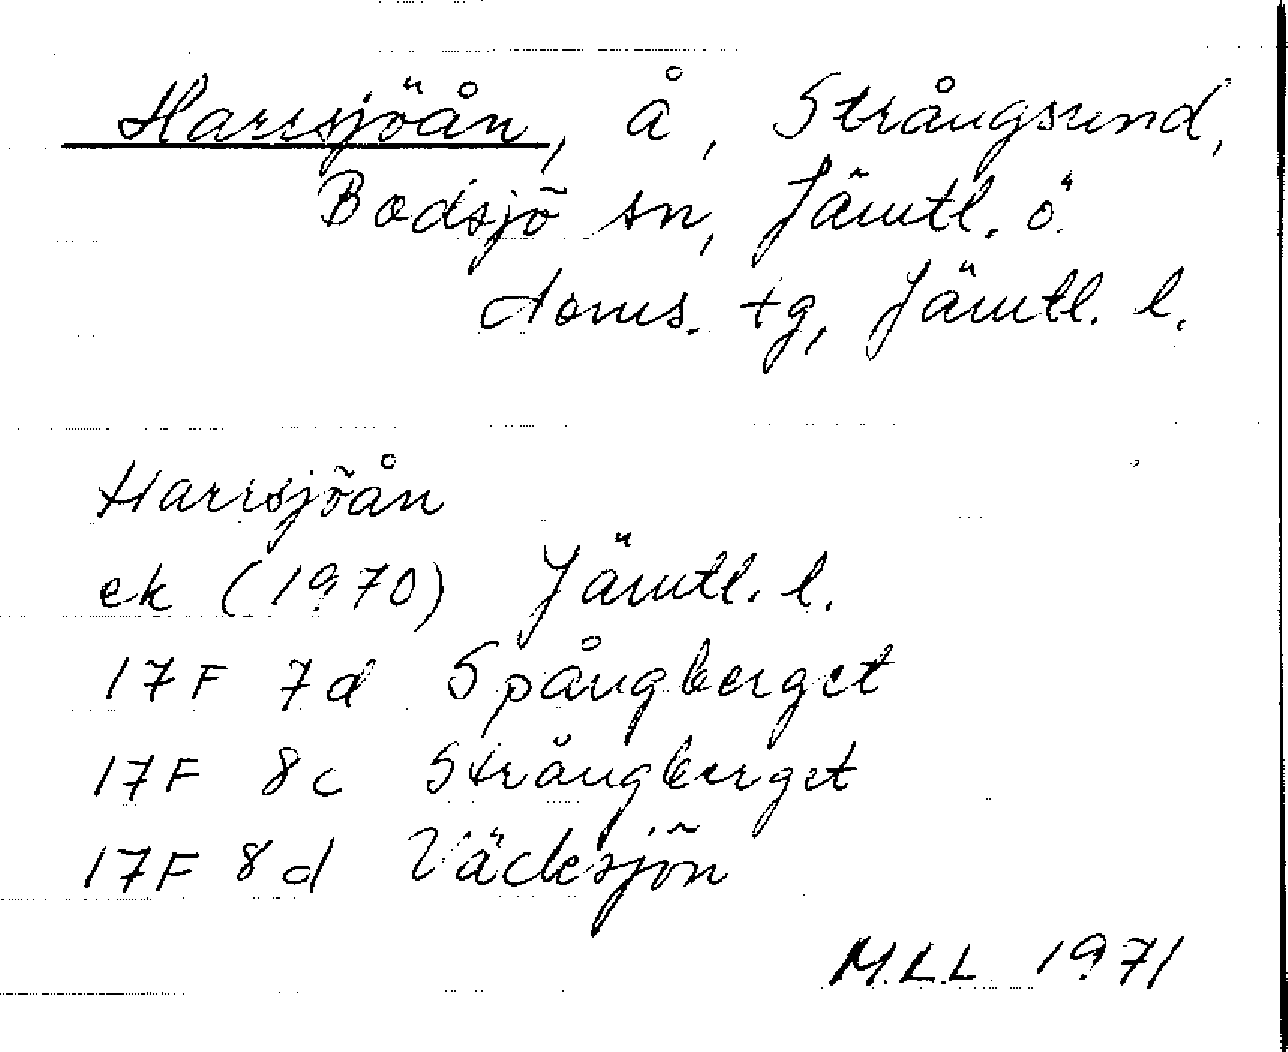 Harrsjöån, å, Strångsund,
Bodsjö sn, Jämtl. ö.
doms. tg, Jämtl. l.
Harrsjöån
ek (1970) Jämtl. l.
17F 7d Spångberget
17F 8c Strångberget
17F 8d Väcksjön
M.L.L 1971